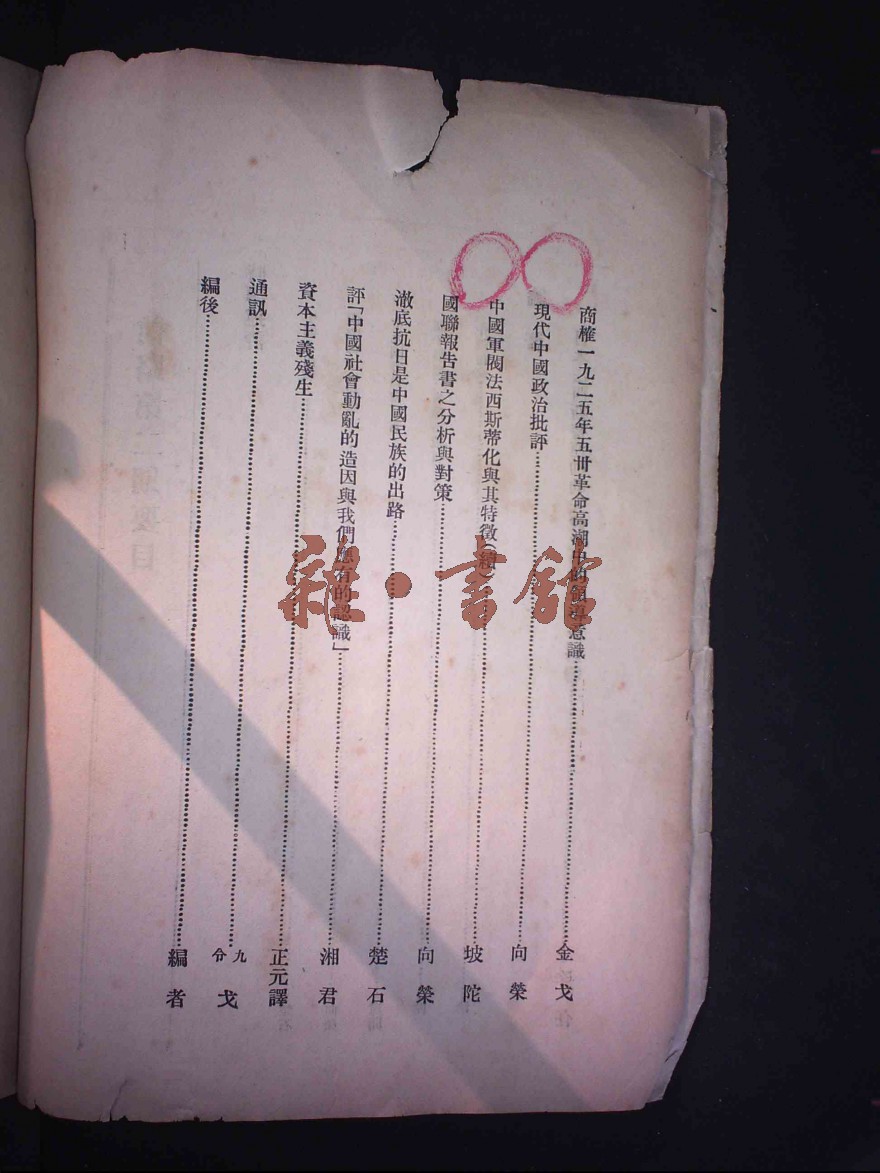 商榷一九二五年五卅革命高潮中的領導意識……金戈
現代中國政治批評……向榮
中國軍閥法西斯蒂化與其特徵(續)……坡陀
國聯報告書之分析與對策……向榮
澈底抗日是中國民族的出路……楚石
評「中國社會動亂的造因與我們應有的認識」……湘君
資本主義殘生……正元譯
通訊……九分戈
編後……編者
雜·書館